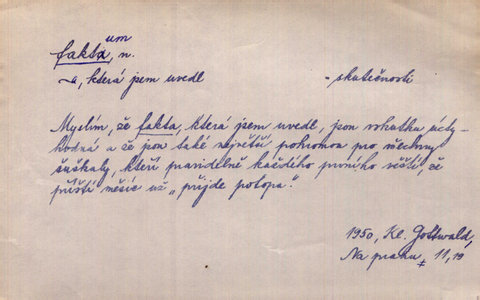 um
fakta, n.
~a, která jsem uvedl - skutečnosti
Myslím, že fakta, která jsem uvedl, jsou vskutku úcty-
hodná a že jsou také největší pohromou pro všechny
šuškaly, kteří pravidelně každého prvního věští, že
příští měsíc už „přijde potopa".
1950, Kl. Gottwald,
Na prahu, 11,19